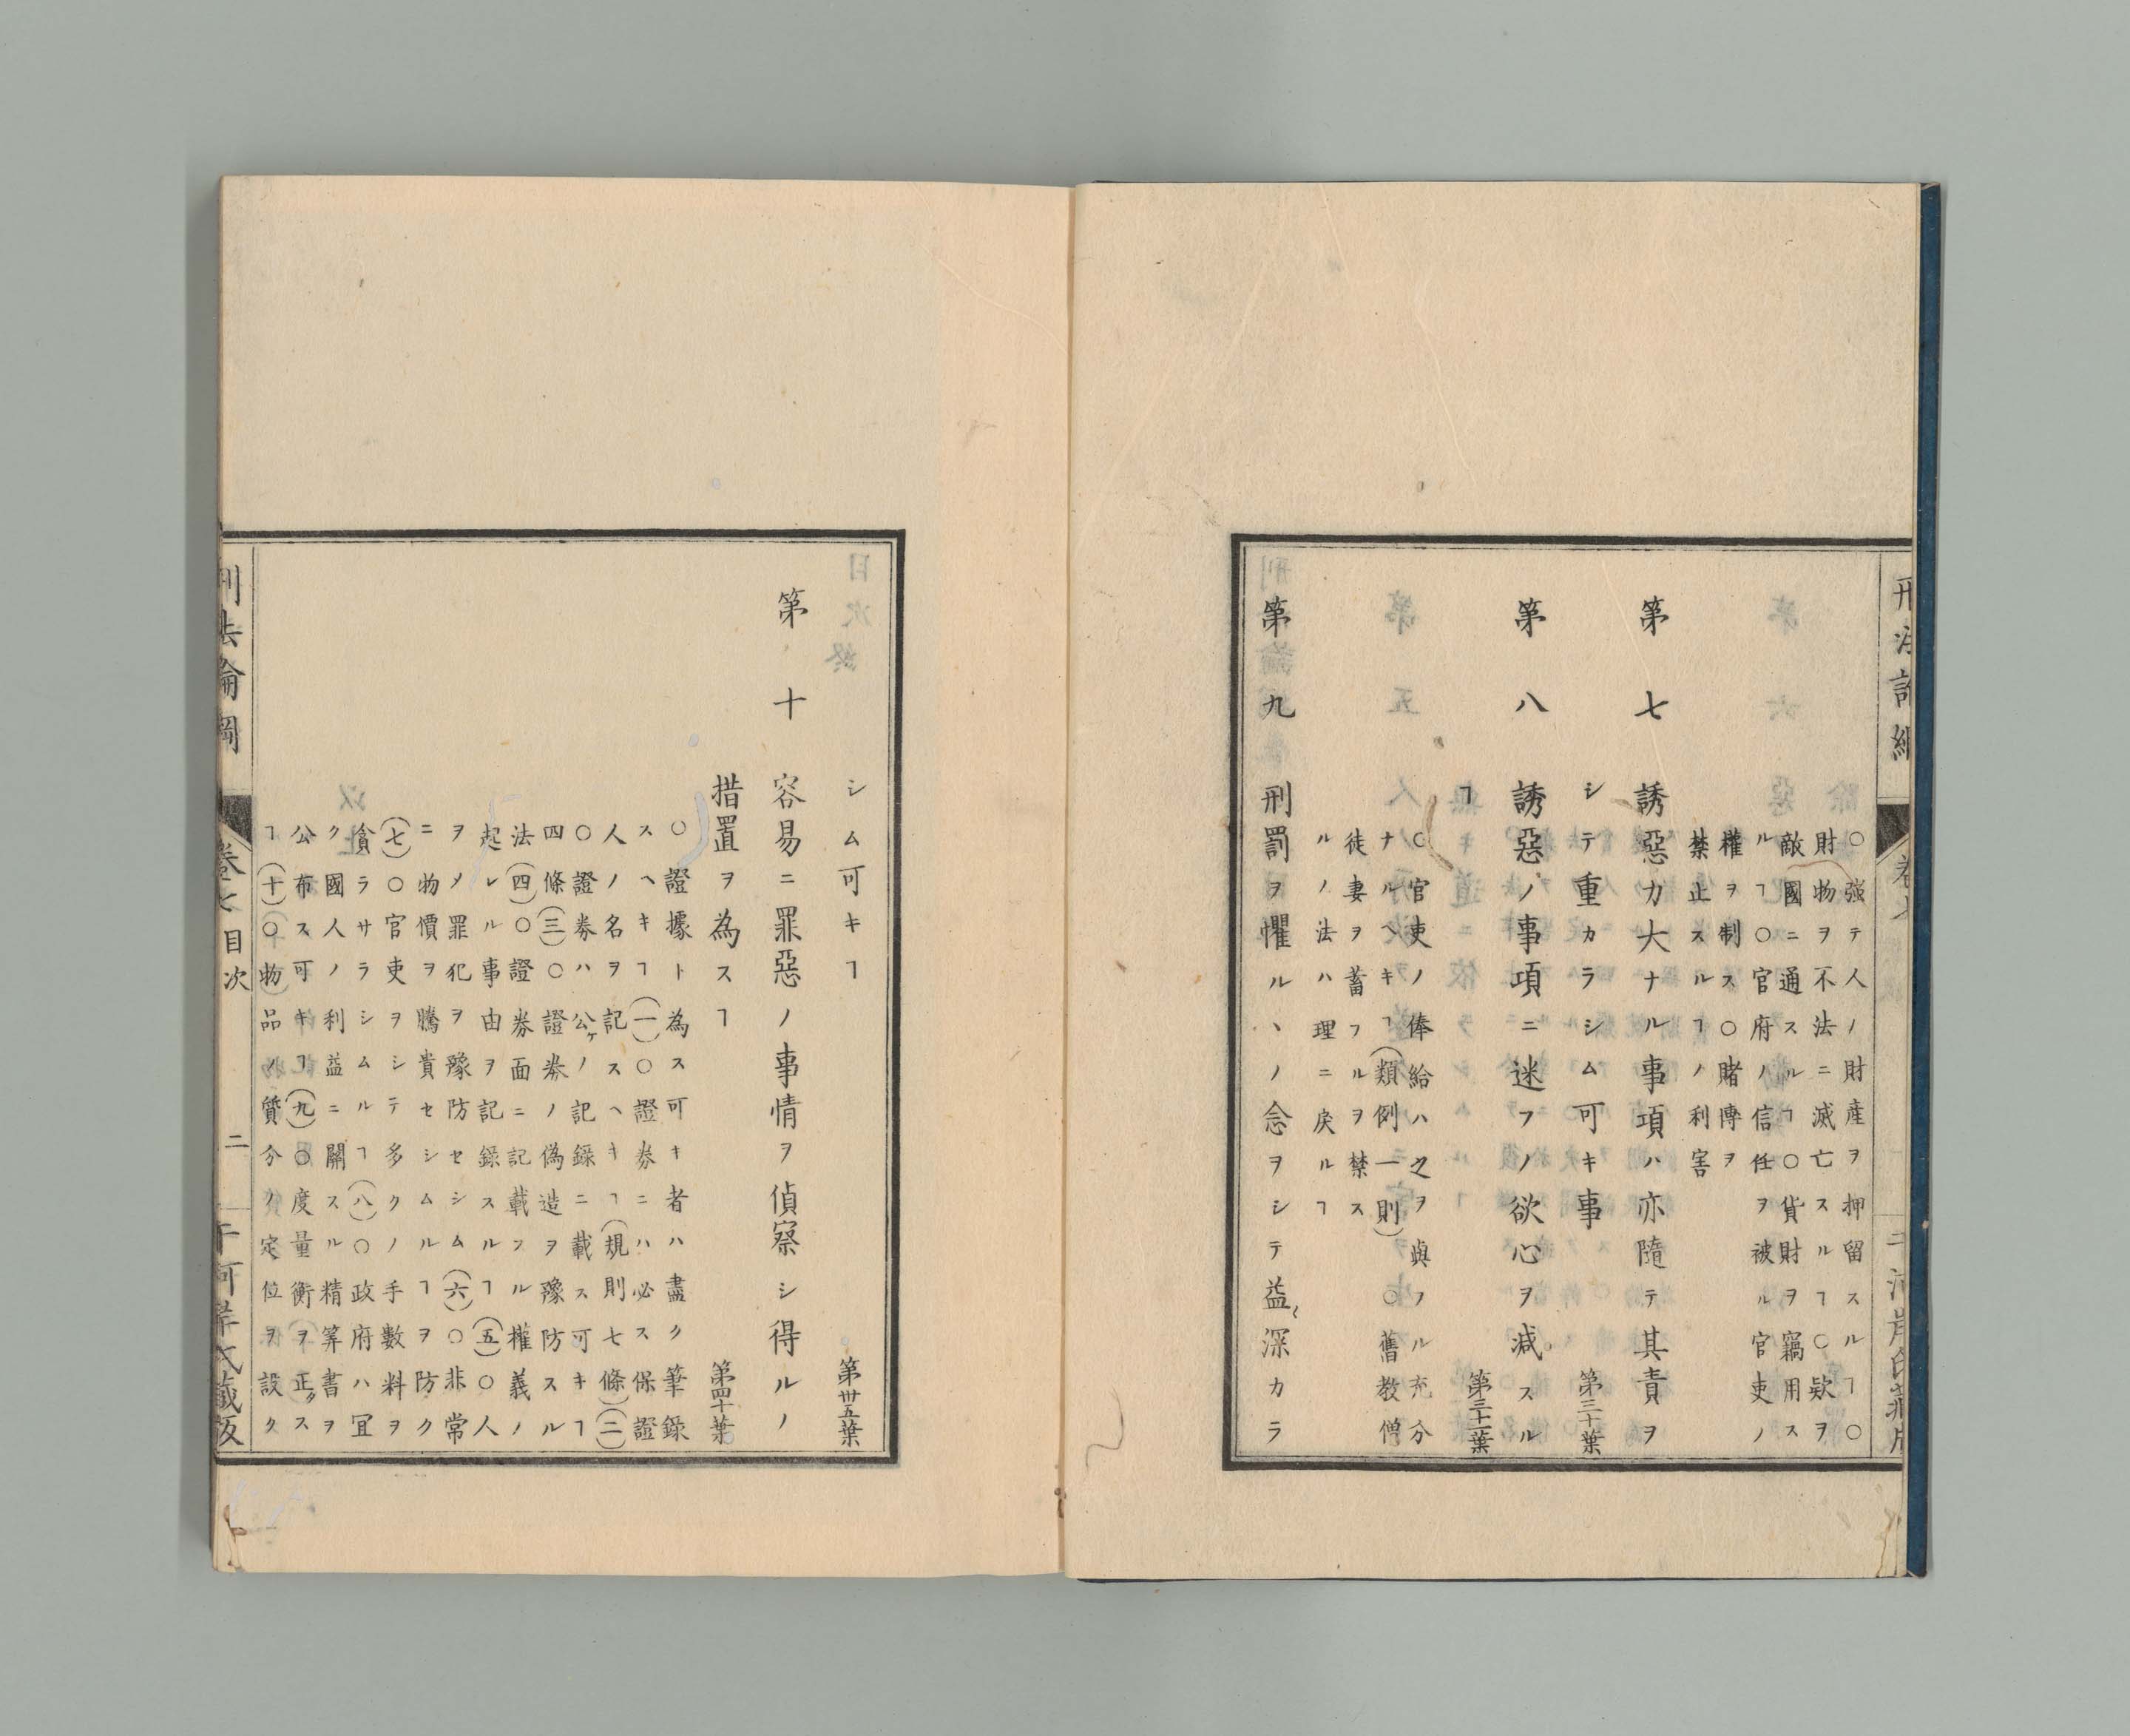 ○強テ人ノ財産ヲ押留スルヿ○
財物ヲ不法ニ滅亡スルヿ○欵ヲ
敵國ニ通スルヿ○貨財ヲ竊用ス
ルヿ○官府ノ信任ヲ被ル官吏ノ
權ヲ制ス○賭博ヲ
禁止スルヿノ利害
第七 誘惡カ大ナル事項ハ亦隨テ其責ヲ
シテ重カラシム可キ事 第三十葉
第八 誘惡ノ事項ニ迷フノ欲心ヲ減スル
ヿ 第三十一葉
○官吏ノ俸給ハ之ヲ與フル充分
ナルヘキヿ(類例一則)○舊教僧
徒妻ヲ蓄フルヲ禁ス
ルノ法ハ理ニ戻ルヿ
第九 刑罰ヲ懼ルヽノ念ヲシテ益〻深カラ
シム可キヿ 第卅五葉
第十 容易ニ罪惡ノ事情ヲ偵察シ得ルノ
措置ヲ為スヿ 第四十葉
○證據ト為ス可キ者ハ盡ク筆録
スヘキヿ(一)○證券ニハ必ス保證
人ノ名ヲ記スヘキヿ(規則七條)(二)
○證券ハ公ケノ記録ニ載ス可キヿ
四條(三)○證券ノ偽造ヲ豫防スル
法(四)○證券面ニ記載フル權義ノ
起レル事由ヲ記録スルヿ(五)○人
ヲメ罪犯ヲ豫防セシム(六)○非常
ニ物價ヲ騰貴セシムルヿヲ防ク
(七)○官吏ヲシテ多クノ手數料ヲ
貪ラサラシムルヿ(八)○政府ハ冝
ク國人ノ利益ニ關スル精筭書ヲ
公布ス可キヿ(九)○度量衡ヲ正クス
ヿ(十)○物品ノ質分ノ定位ヲ設ク
刑法論綱 卷七 目次 二 千河岸氏藏版